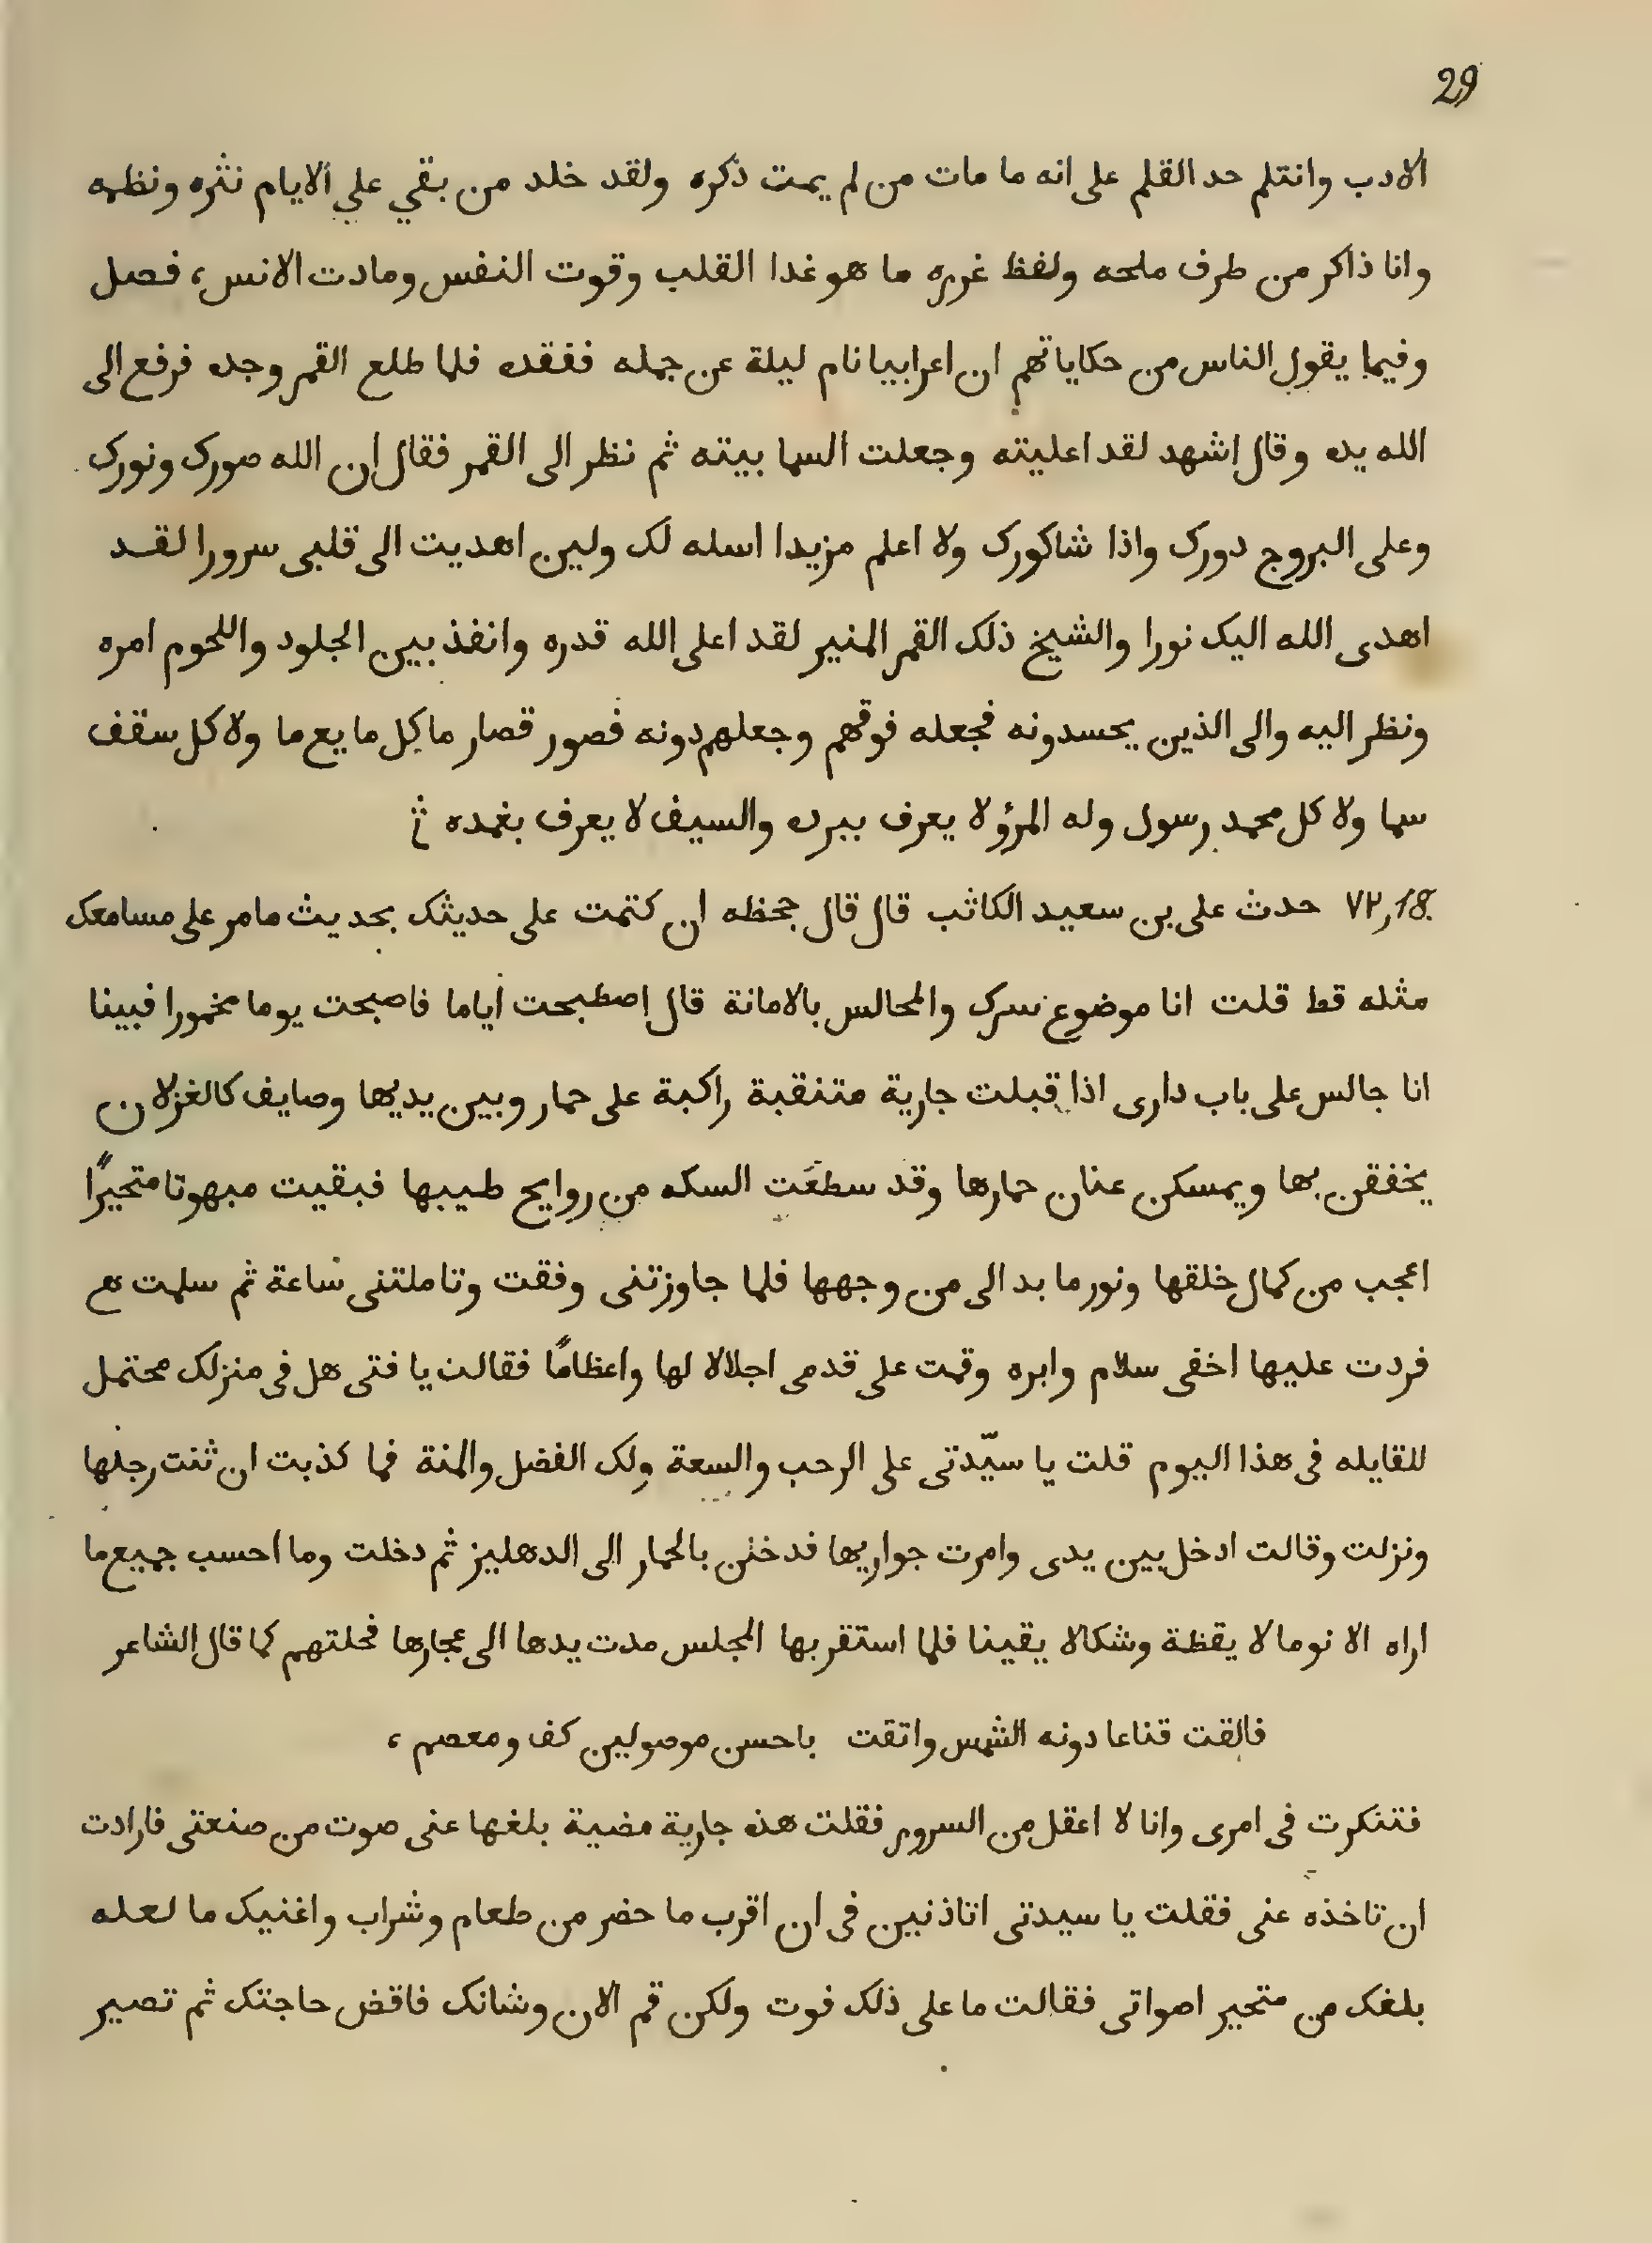 29
الادب وانتلم حد القلم على انه ما مات من لم يمت ذكره ولقد خلد من بقي علي الايام نثره ونظمه
وانا ذاكر من طرف ملحه ولفظ غرره ما هو غدا القلب وقوت النفس ومادت الانس، فصل
وفيما يقول الناس من حكاياتهم ان اعرابيا نام ليلة عن جمله ففقده فلما طلع القمر وجده فرفع الى
الله يده وقال اشهد لقد اعليته وجعلت السما بيته ثم نظر الى القمر فقال ان الله صورك ونورك
وعلى البروج دورك واذا شاكورك ولا اعلم مزيدا اسله لك ولين اهديت الى قلبى سرورا لقد
اهدى الله اليك نورا والشيخ ذلك القمر المنير لقد اعلى الله قدره وانفذ بين الجلود واللحوم امره
ونظر اليه والى الذين يحسدونه فجعله فوقهم وجعلهم دونه فصور قصار ما كل ما يع ما ولا كل سقف
سما ولا كل محمد رسول وله المرؤ لا يعرف ببرده والسيف لا يعرف بغمده
٧٢,18 حدث على بن سعيد الكاتب قال قال جحظه ان كتمت على حديثك بحديث ما مر على مسامعك
مثله قط قلت انا موضوع سرك والمجالس بالامانة قال اصطبحت اياما فاصبحت يوما مخمورا فبينا
انا جالس على باب دارى اذا قبلت جارية متنقبة راكبة على حمار وبين يديها وصايف كالغزلان
يخففن بها ويمسكن عنان حمارها وقد سطعَت السكه من روايح طيبها فبقيت مبهوتا متحيرًا
اعجب من كمال خلقها ونور ما بد الى من وجهها فلما جاوزتنى وفقت وتاملتنى ساعة ثم سلمت هى
فردت عليها اخفى سلام وابره وقمت على قدمى اجلالا لها واعظامًا فقالت يا فتى هل فى منزلك محتمل
للقايله فى هذا اليوم قلت يا سيّدتى على الرحب والسعة ولك الفضل والمنة فما كذبت ان ثنت رجلها
ونزلت وقالت ادخل بين يدى وامرت جواريها فدخلن بالحمار الى الدهليز ثم دخلت وما احسب جميع ما
اراه الا نوما لا يقظة وشكالا يقينا فلما استقر بها المجلس مدت يدها الى عجارها فحلتهم كما قال الشاعر
فالقت قناعا دونه الشمس واتقت باحسن موصولين كف ومعصم،
فتنكرت فى امرى وانا لا اعقل من السرور فقلت هذه جارية مضية بلغها عنى صوت من صنعتى فارادت
ان تاخذه عنى فقلت يا سيدتى اتاذنين فى ان اقرب ما حضر من طعام وشراب واغنيك ما لعله
بلغك من متحير اصواتى فقالت ما على ذلك فوت ولكن قم الان وشانك فاقض حاجتك ثم تصير